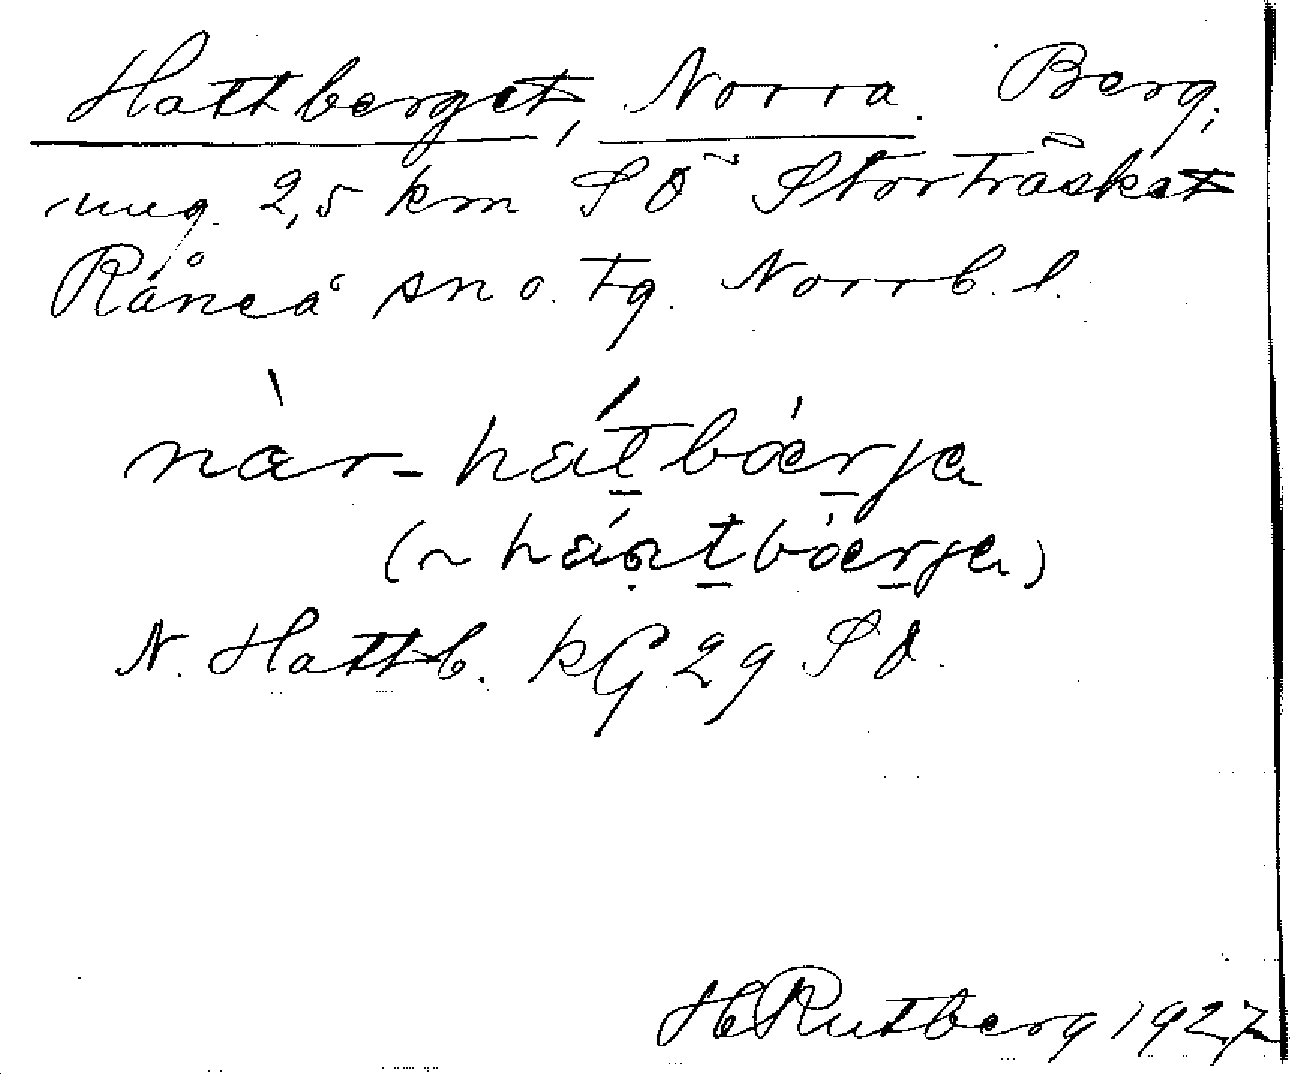 Hattberget, Norra. Berg,
ung. 2,5 km SÖ Storträsket
Råneå sn o. tg. Norrb. l.
nàr-hátbærja
(~ hántbærja)
N. Hattb. kG 29 SO.
H Rutberg 1927